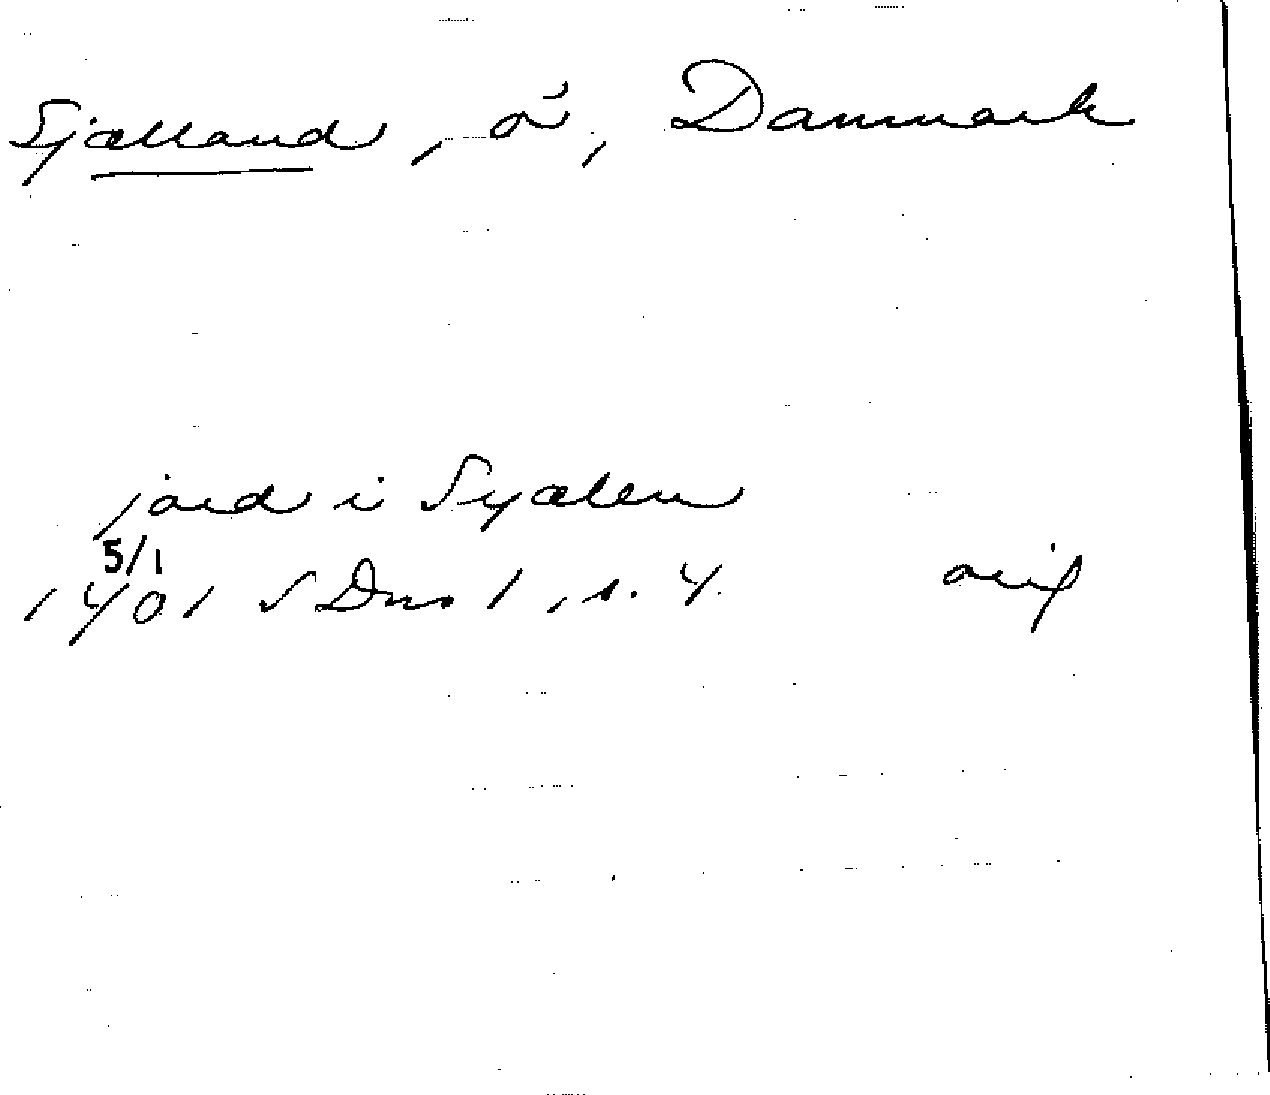 Sjælland, ö, Danmark
jord i Syælen
5/1
1401 SDns 1, s. 4. orig